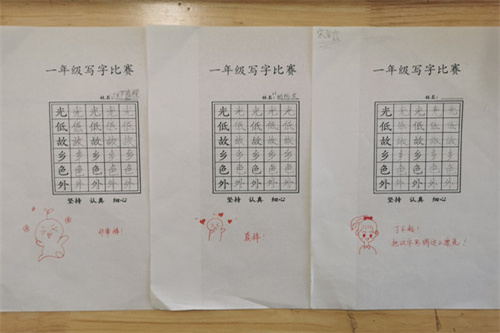 一年级写字比赛
姓名：
光光光光光
低低低低低
故故故故故
乡乡乡乡乡
色色色色色
外外外外外
坚持 认真 细心
非常棒！
一年级写字比赛
姓名：
光光光光光
低低低低低
故故故故故
乡乡乡乡乡
色色色色色
外外外外外
坚持 认真 细心
真棒！
一年级写字比赛
姓名：
光光光光光
低低低低低
故故故故故
乡乡乡乡乡
色色色色色
外外外外外
坚持 认真 细心
了不起！